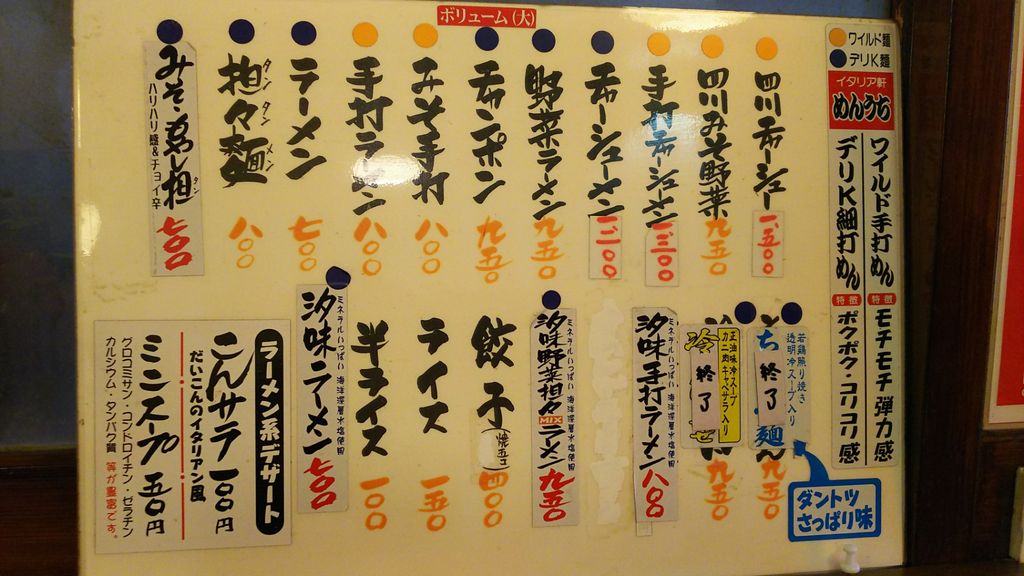 ボリューム(大)
ワイルド麺
デリK麺
イタリア軒
めんうち
ワイルド手打めん
特徴
モチモチ弾力感
デリK細打めん
特徴
ポクポク・コリコリ感
四川チャーシュー
一、五〇〇
四川みそ野菜
九五〇
手打チャーシューメン
一、三〇〇
チャーシューメン
一、二〇〇
野菜ラーメン
九五〇
チャンポン
九五〇
みそ手打
八〇〇
手打ラーメン
八〇〇
ラーメン
七〇〇
担々麺
タンタンメン
八〇〇
ハリハリ麺&チョイ辛
七〇〇
若鶏照り焼き
透明冷スープ入り
ち
終了
麺
九五〇
正油味冷スープ
カニ肉キャベサラ入り
冷
終了
九五〇
ダントツ
さっぱり味
ミネラルいっぱい 海洋深層水塩使用
汐味手打ラーメン
八〇〇
ミネラルいっぱい 海洋深層水塩使用
汐味野菜担々MIXラーメン
九五〇
餃子(焼五コ)
四〇〇
ライス
一五〇
半ライス
一〇〇
ミネラルいっぱい 海洋深層水塩使用
汐味ラーメン
七〇〇
ラーメン系デザート
こんサラ 一〇〇円
だいこんのイタリアン風
ミニスープ 五〇円
グロコミサン・コンドロイチン・ゼラチン
カルシウム・タンパク質 等が豊富です。